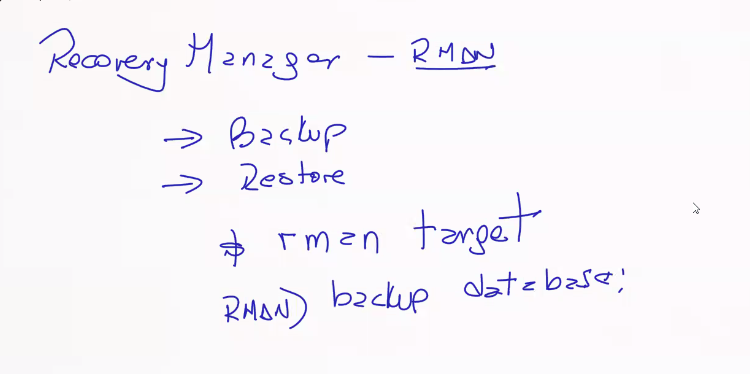 Recovery Manager - RMAN
→ Backup
→ Restore
$ rman target
RMAN> backup database;